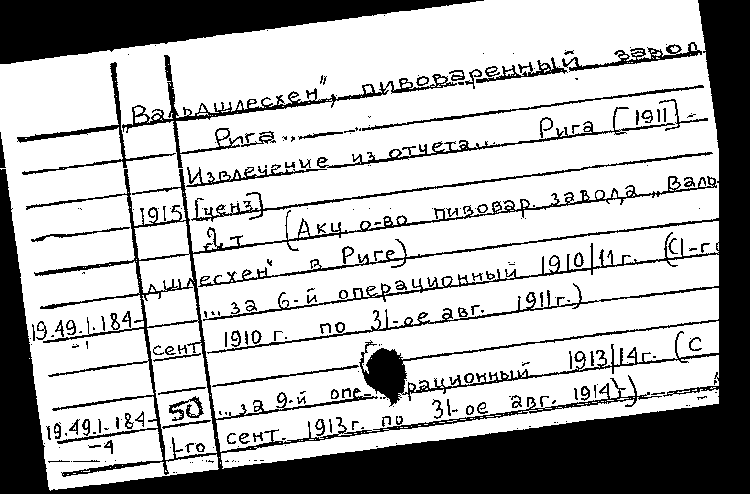 „Вальдшлесхен", пивоваренный завод
Рига...
Извлечение из отчета... Рига [1911] -
1915 [ценз]
2 т (Акц. о-во пивовар. завода „Валь-
дшлесхен" в Риге)
19.49.1.184-1 ...за 6-й операционный 1910/11 г. (1-го
сент. 1910 г. по 31-ое авг. 1911 г.)
19.49.1.184-4 50 ...за 9-й операционный 1913/14 г. (С
1-го сент. 1913 г. по 31-ое авг. 1914 г.)